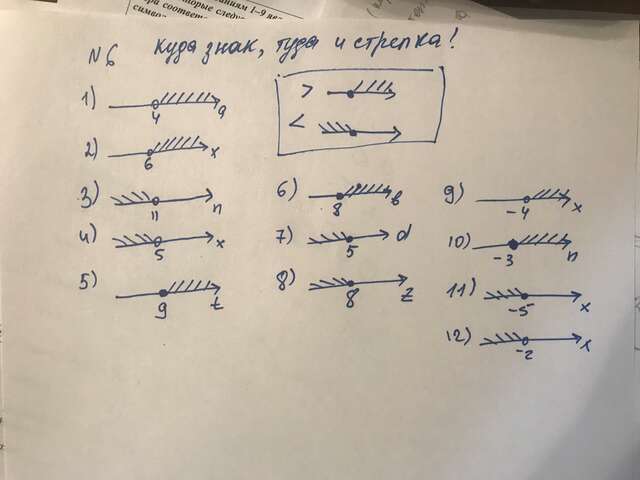 аниям 1–9
символ
№6 куда знак, туда и стрелка!
>
<
1) 4 a
2) 6 x
3) 11 n
4) 5 x
5) 9 t
6) 8 b
7) 5 d
8) 8 z
9) -4 x
10) -3 n
11) -5 x
12) -2